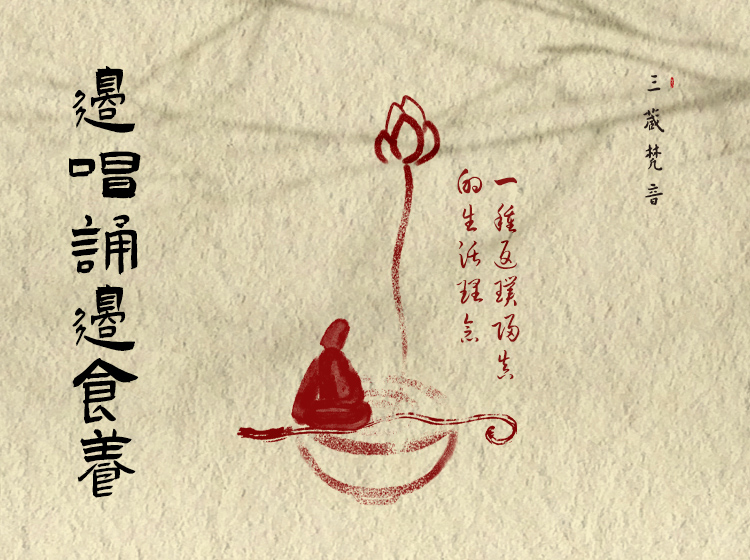 三藏梵音
一種返璞歸真
的生活理念
邊唱誦邊食養